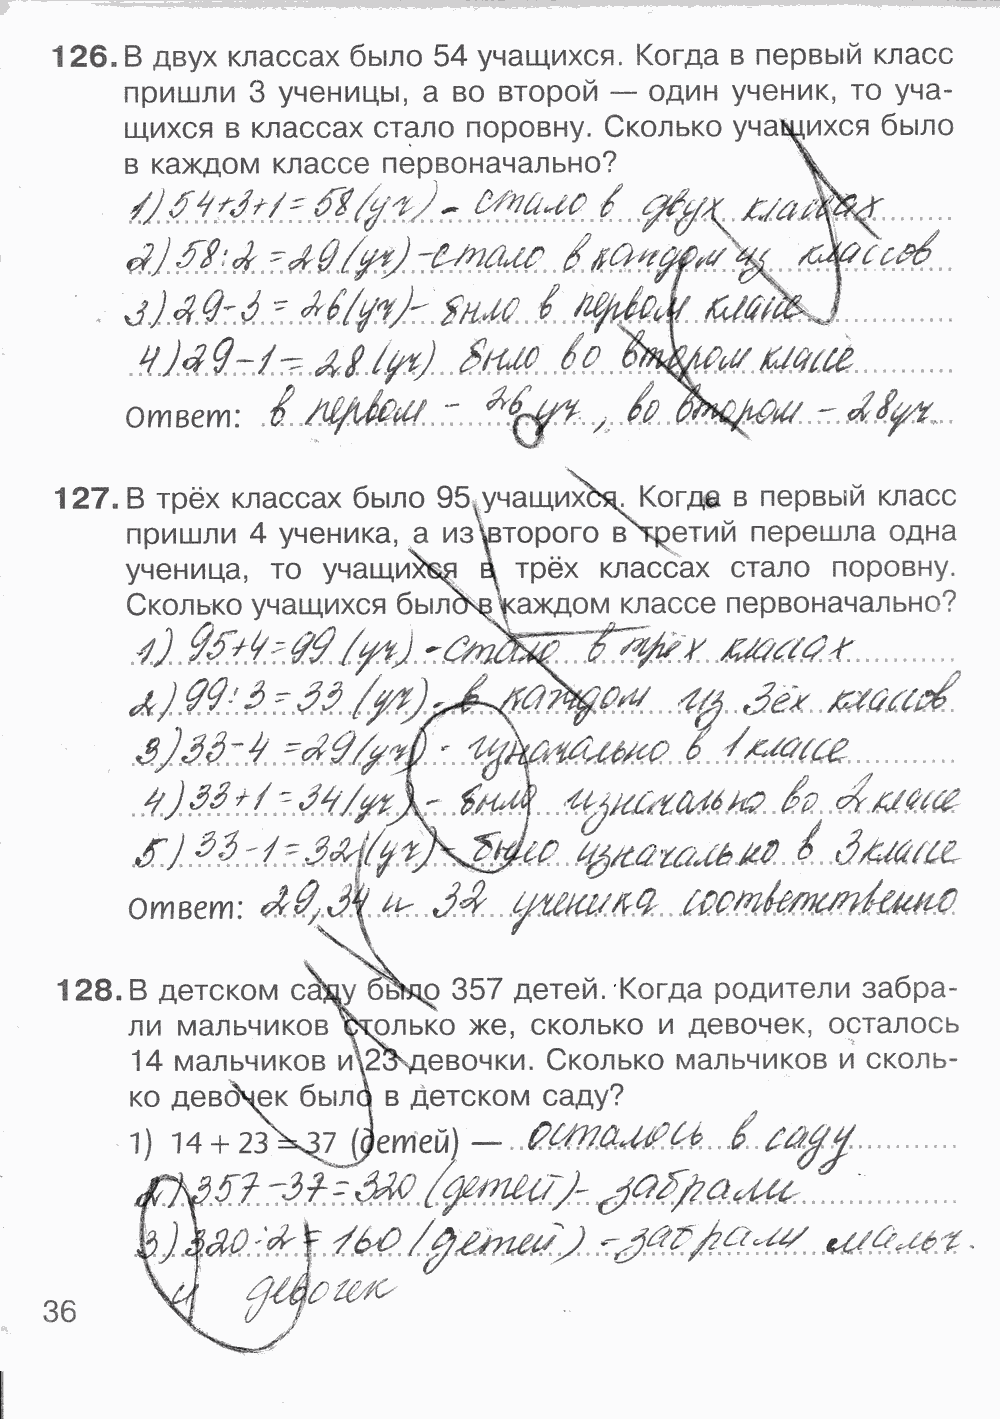 126. В двух классах было 54 учащихся. Когда в первый класс
пришли 3 ученицы, а во второй — один ученик, то уча-
щихся в классах стало поровну. Сколько учащихся было
в каждом классе первоначально?
1) 54+3+1=58 (уч) - стало в двух классах
2) 58:2=29 (уч) - стало в каждом из классов
3) 29-3=26 (уч) - было в первом классе
4) 29-1=28 (уч) было во втором классе
Ответ: в первом - 26 уч., во втором - 28 уч.
127. В трёх классах было 95 учащихся. Когда в первый класс
пришли 4 ученика, а из второго в третий перешла одна
ученица, то учащихся в трёх классах стало поровну.
Сколько учащихся было в каждом классе первоначально?
1) 95+4=99 (уч) - стало в трёх классах
2) 99:3=33 (уч) - в каждом из 3ёх классов
3) 33-4=29 (уч) - изначально в 1 классе
4) 33+1=34 (уч) - было изначально во 2 классе
5) 33-1=32 (уч) - было изначально в 3 классе
Ответ: 29, 34 и 32 ученика соответственно
128. В детском саду было 357 детей. Когда родители забра-
ли мальчиков столько же, сколько и девочек, осталось
14 мальчиков и 23 девочки. Сколько мальчиков и сколь-
ко девочек было в детском саду?
1) 14 + 23 = 37 (детей) — осталось в саду
2) 357-37=320 (детей) - забрали
3) 320:2=160 (детей) - забрали мальч.
и девочек
36